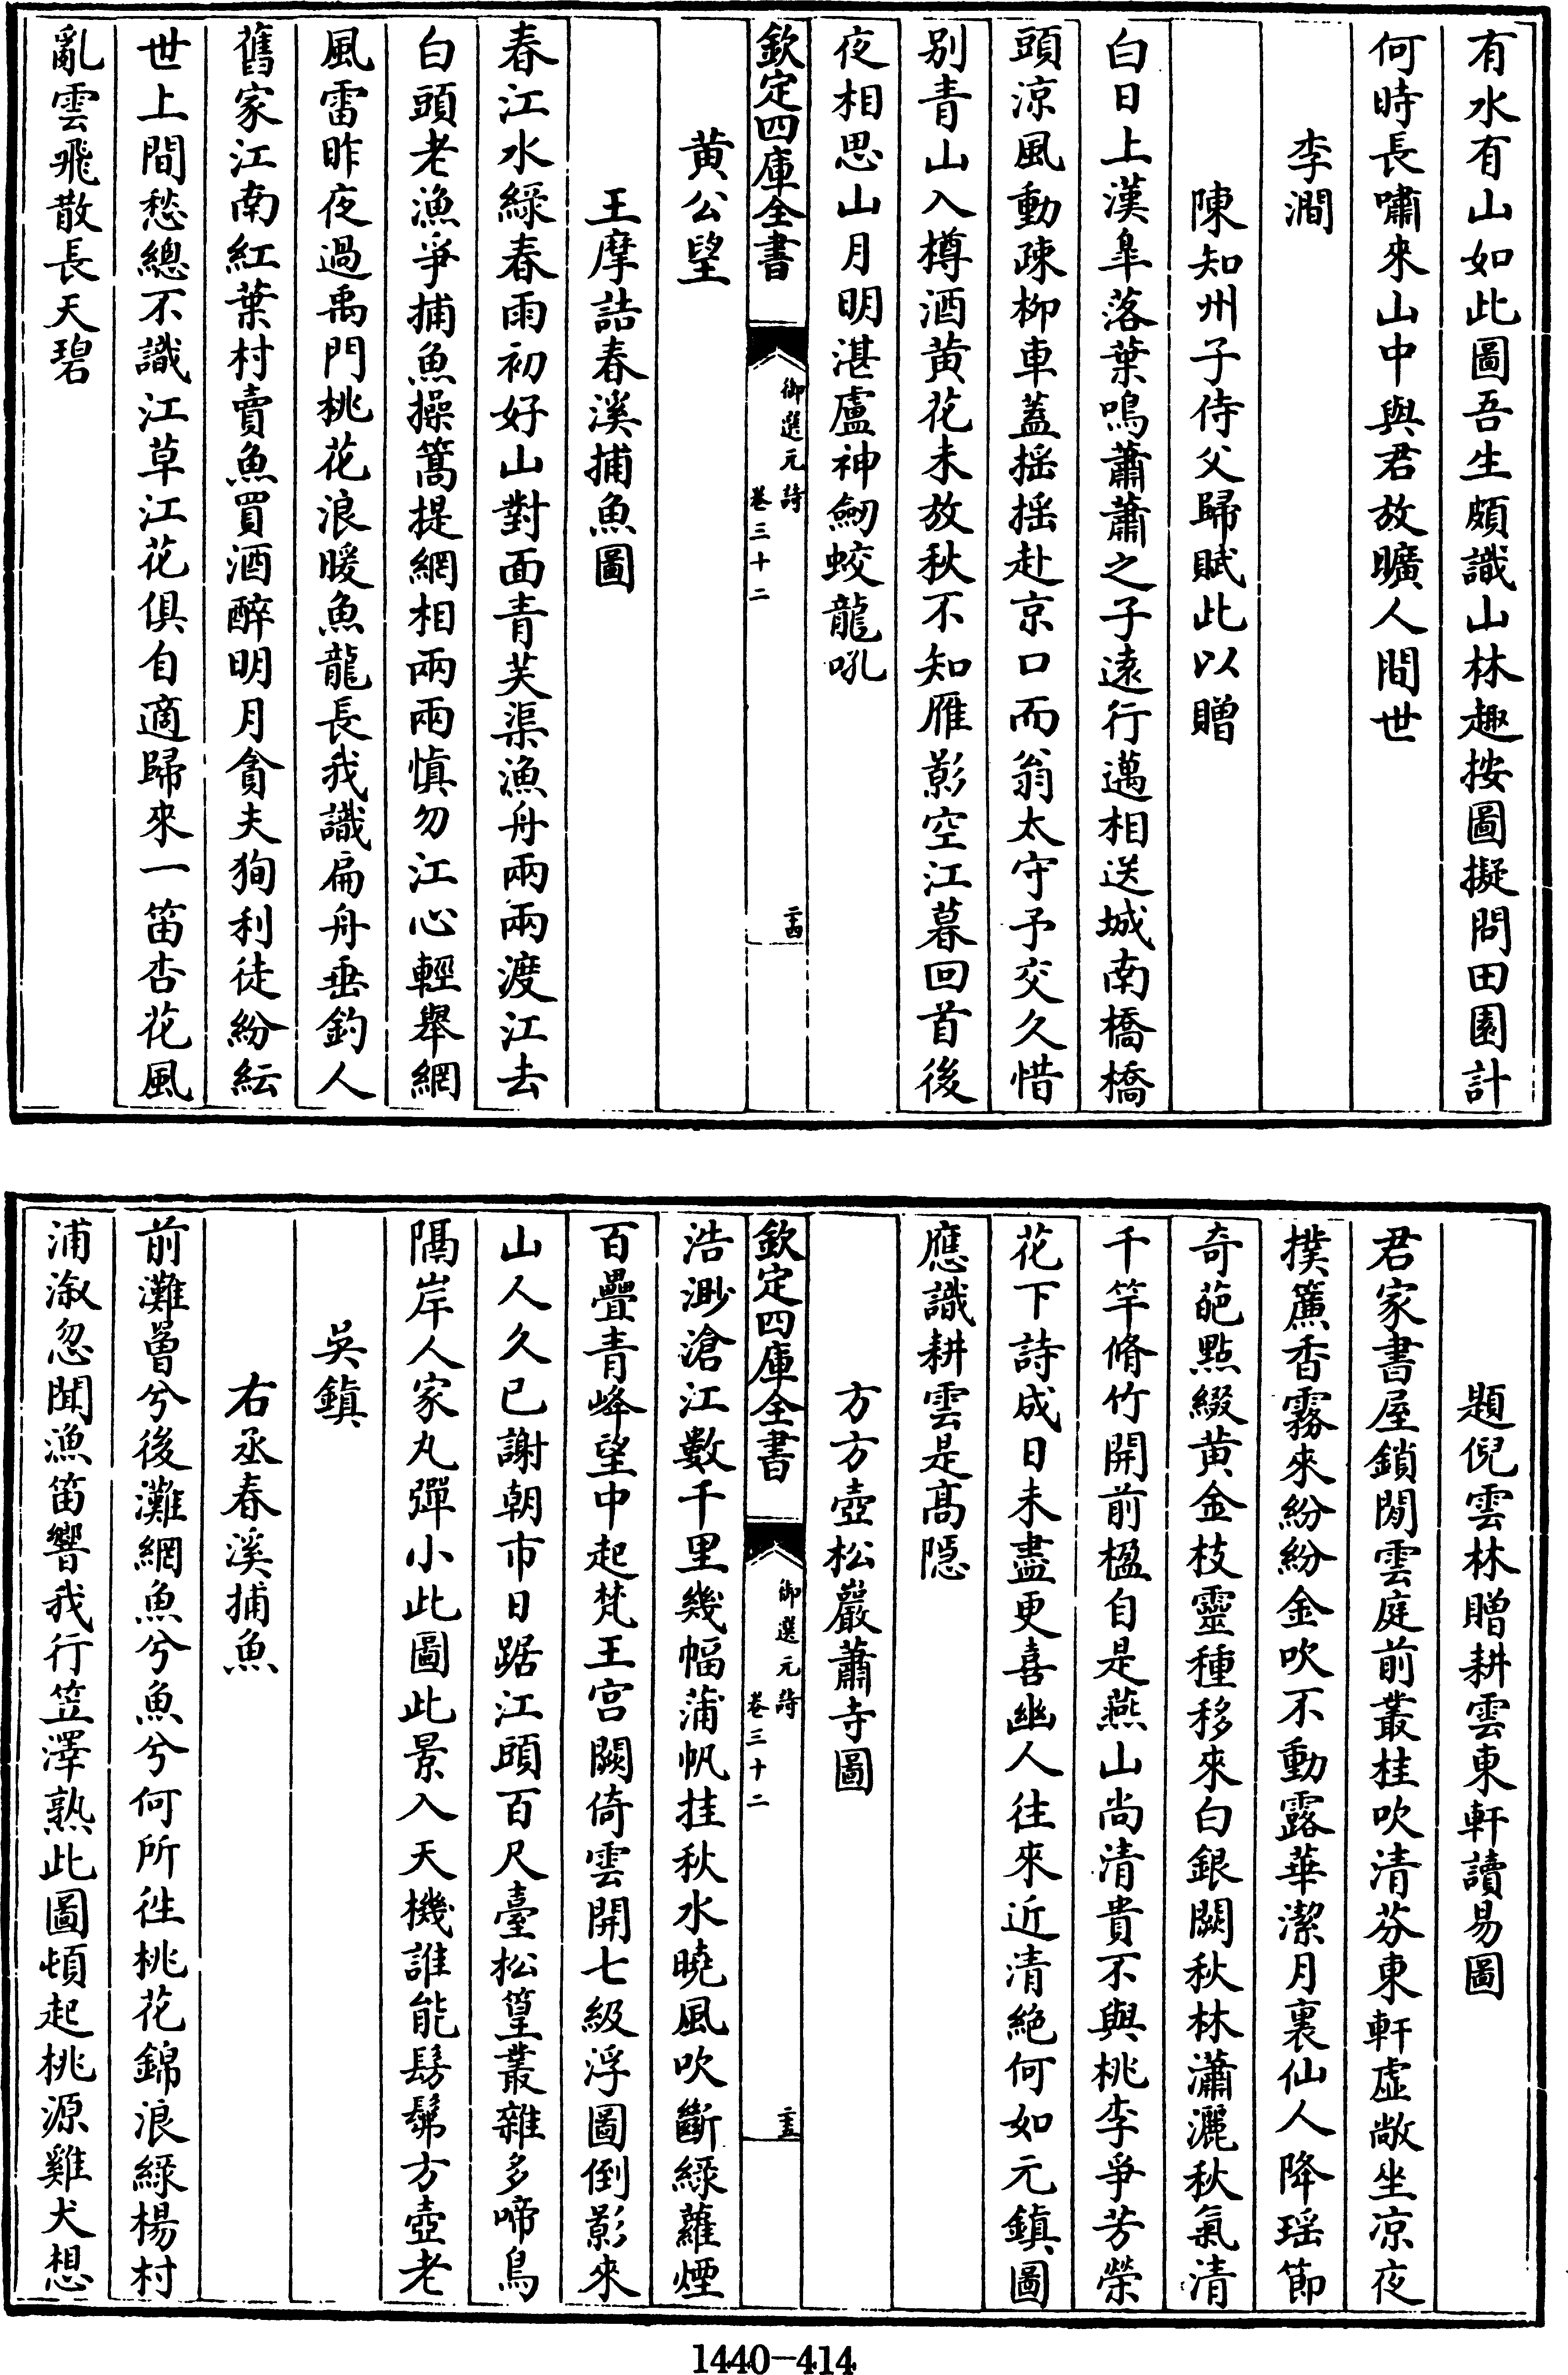 有水有山如此圖吾生頗識山林趣按圖擬問田園計
何時長嘯來山中與君放曠人間世
李澗
陳知州子侍父歸賦此以贈
白日上漢臯落葉鳴蕭蕭之子遠行邁相送城南橋橋
頭涼風動疎柳車蓋揺揺赴京口而翁太守予交久惜
别青山入樽酒黄花未放秋不知雁影空江暮回首後
夜相思山月明湛盧神劒蛟龍吼
欽定四庫全書
御選元詩
卷三十二
二十四
黄公望
王摩詰春溪捕魚圖
春江水綠春雨初好山對面青芙渠漁舟兩兩渡江去
白頭老漁爭捕魚操篙提網相兩兩慎勿江心輕舉網
風雷昨夜過禹門桃花浪暖魚龍長我識扁舟垂釣人
舊家江南紅葉村賣魚買酒醉明月貪夫狥利徒紛紜
世上間愁總不識江草江花俱自適歸來一笛杏花風
亂雲飛散長天碧
題倪雲林贈耕雲東軒讀易圖
君家書屋鎖閒雲庭前叢桂吹清芬東軒虚敞坐凉夜
撲簾香霧來紛紛金吹不動露華潔月裏仙人降瑶節
奇葩點綴黄金枝靈種移來白銀闕秋林瀟灑秋氣清
千竿脩竹開前楹自是燕山尚清貴不與桃李爭芳榮
花下詩成日未盡更喜幽人往來近清絶何如元鎮圖
應識耕雲是髙隠
方方壺松巖蕭寺圖
欽定四庫全書
御選元詩
卷三十二
二十五
浩渺滄江數千里幾幅蒲帆挂秋水曉風吹斷綠蘿煙
百疊青峰望中起梵王宫闕倚雲開七級浮圖倒影來
山人久已謝朝市日踞江頭百尺臺松篁叢雜多啼鳥
隔岸人家丸彈小此圖此景入天機誰能髣髴方壺老
吳鎮
右丞春溪捕魚
前灘罾兮後灘網魚兮魚兮何所徃桃花錦浪綠楊村
浦溆忽聞漁笛響我行笠澤熟此圖頓起桃源雞犬想
1440-414